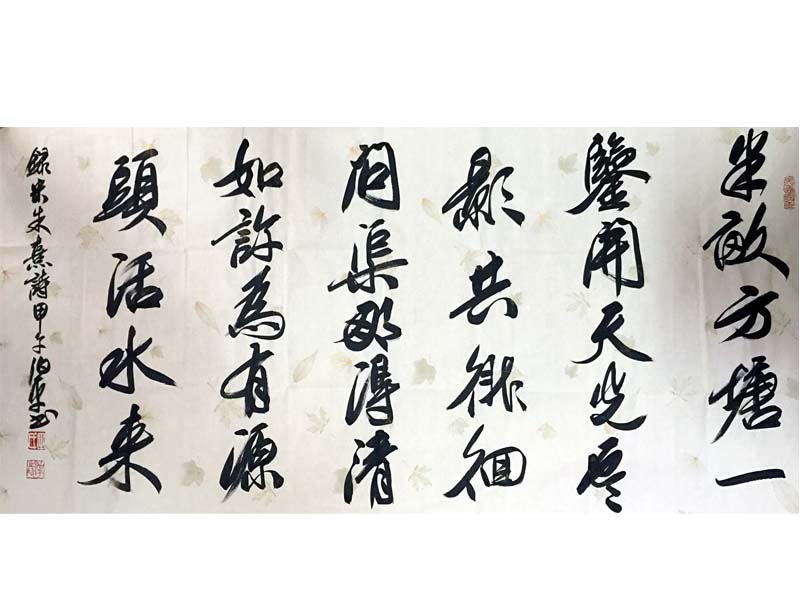 半畝方塘一
鑒開天光雲
影共徘徊
問渠那得清
如許為有源
頭活水来
録宋朱熹詩甲午书